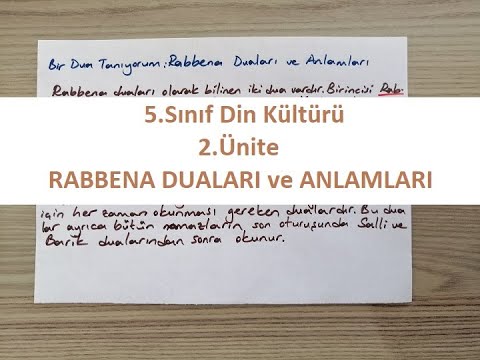 Bir Dua Tanıyorum: Rabbena Duaları ve Anlamları
Rabbena duaları olarak bilinen iki dua vardır. Birincisi Rab-
5.Sınıf Din Kültürü
2.Ünite
RABBENA DUALARI ve ANLAMLARI
için her zaman okunması gereken dualardır. Bu dua
lar ayrıca bütün namazların son oturuşunda Salli ve
Barik dualarından sonra okunur.